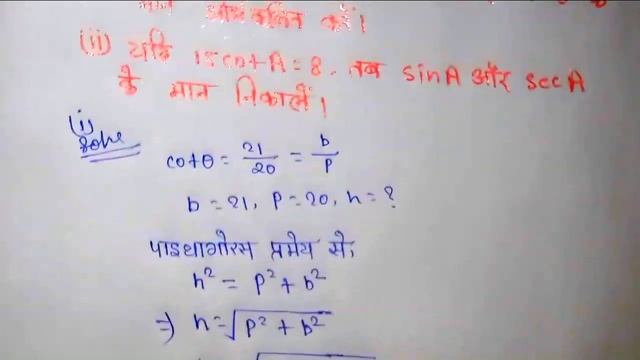 मान आकलित करें।
(ii) यदि 15cotA=8, तब sinA और secA
के मान निकालें।
(i)
Solve
cotθ = 21/20 = b/p
b = 21, p = 20, h = ?
पाइथागोरस प्रमेय से,
h² = p² + b²
⇒ h = √(p² + b²)